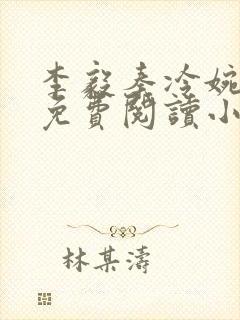 李毅秦冷婉
免費閱讀小
林某濤